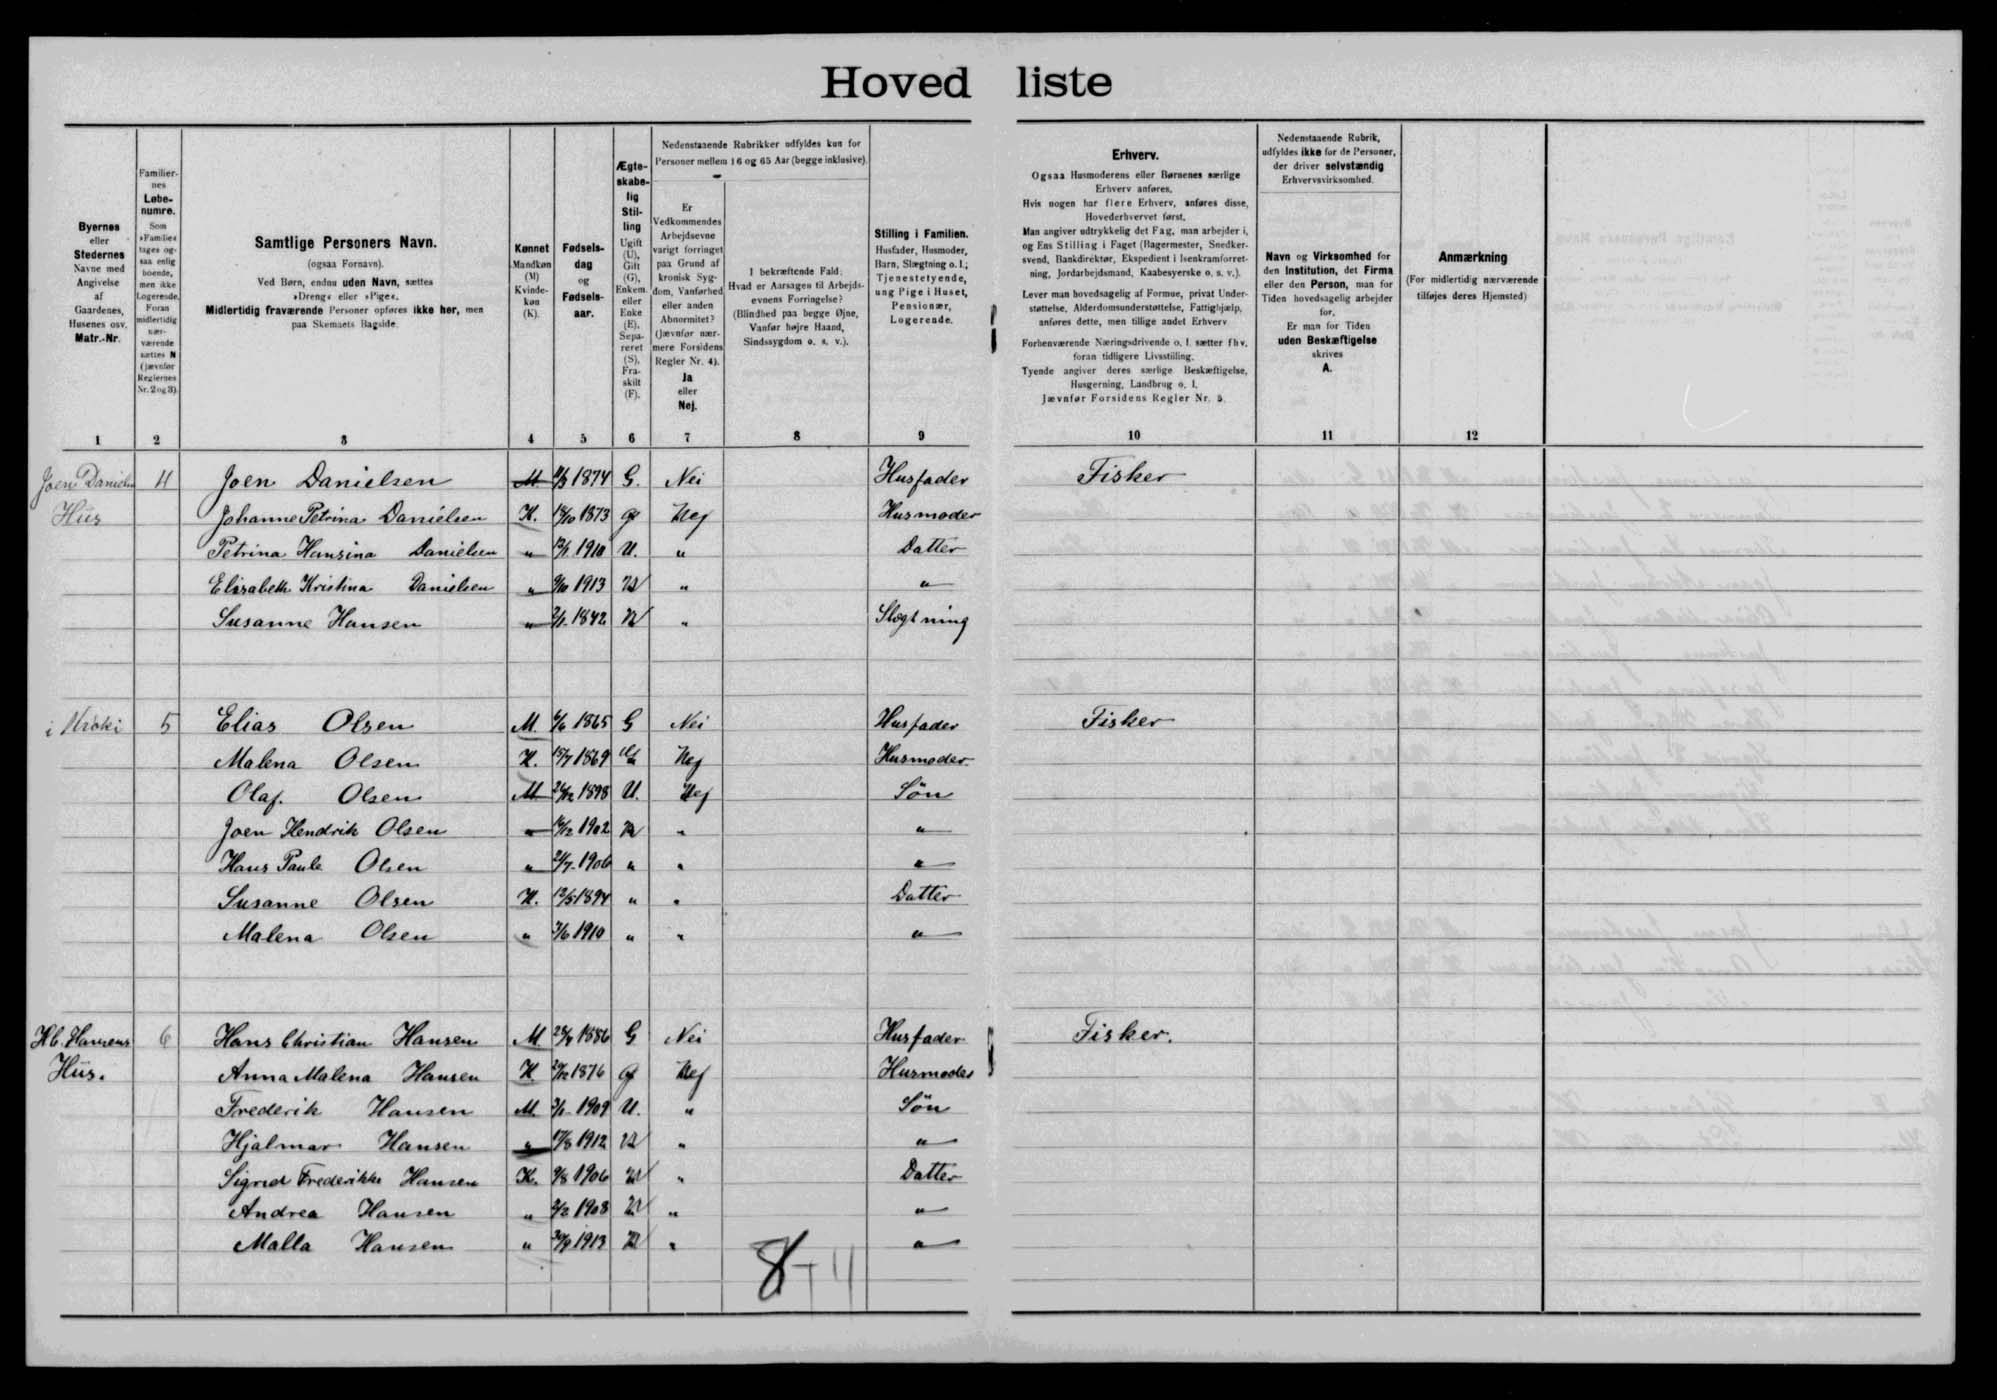 Hoved liste
Byernes
eller
Stedernes
Navne med
Angivelse
af
Gaardenes,
Husenes osv.
Matr.-Nr.
Familier-
nes
Løbe-
numre.
Som
»Familie«
tages og-
saa enlig
boende,
men ikke
Logerende.
Foran
midlertidig
nær-
værende
sættes N
(jævnfør
Reglernes
Nr. 2 og 3).
Samtlige Personers Navn.
(ogsaa Fornavn).
Ved Børn, endnu uden Navn, sættes
»Dreng« eller »Pige«.
Midlertidig fraværende Personer opføres ikke her, men
paa Skemaets Bagside.
Kønnet
Mandkøn
(M)
Kvinde-
køn
(K).
Fødsels-
dag
og
Fødsels-
aar.
Ægte-
skabe-
lig
Stil-
ling
Ugift
(U),
Gift
(G),
Enkem.
eller
Enke
(E),
Sepa-
reret
(S),
Fra-
skilt
(F).
Nedenstaaende Rubrikker udfyldes kun for
Personer mellem 16 og 65 Aar (begge inklusive).
Er
Vedkommendes
Arbejdsevne
varigt forringet
paa Grund af
kronisk Syg-
dom, Vanførhed
eller anden
Abnormitet?
(Jævnfør nær-
mere Forsidens
Regler Nr. 4).
Ja
eller
Nej.
I bekræftende Fald:
Hvad er Aarsagen til Arbejds-
evnens Forringelse?
(Blindhed paa begge Øjne,
Vanfør højre Haand,
Sindssygdom o. s. v.).
Stilling i Familien.
Husfader, Husmoder,
Barn, Slægtning o. l.;
Tjenestetyende,
ung Pige i Huset,
Pensionær,
Logerende.
Erhverv.
Ogsaa Husmoderens eller Børnenes særlige
Erhverv anføres.
Hvis nogen har flere Erhverv, anføres disse,
Hovederhvervet først.
Man angiver udtrykkelig det Fag, man arbejder i,
og Ens Stilling i Faget (Bagermester, Snedker-
svend, Bankdirektør, Ekspedient i Isenkramforret-
ning, Jordarbejdsmand, Kaabesyerske o. s. v.).
Lever man hovedsagelig af Formue, privat Under-
støttelse, Alderdomsunderstøttelse, Fattighjælp,
anføres dette, men tillige andet Erhverv
Forhenværende Næringsdrivende o. l. sætter fhv.
foran tidligere Livsstilling.
Tyende angiver deres særlige Beskæftigelse,
Husgerning, Landbrug o. l.
Jævnfør Forsidens Regler Nr. 5.
Nedenstaaende Rubrik,
udfyldes ikke for de Personer,
der driver selvstændig
Erhvervsvirksomhed.
Navn og Virksomhed for
den Institution, det Firma
eller den Person, man for
Tiden hovedsagelig arbejder
for.
Er man for Tiden
uden Beskæftigelse
skrives
A.
Anmærkning
(For midlertidig nærværende
tilføjes deres Hjemsted)
1 2 3 4 5 6 7 8 9 10 11 12
Joen Danielsen 4 Joen Danielsen M 1874 G. Nei Husfader Fisker
Hus Johanne Petrina Danielsen K. 18/10 1873 G Nej Husmoder
Petrina Hansina Danielsen " 1910 U. " Datter
Elisabeth Kristina Danielsen " 9/10 1913 U " "
Susanne Hansen " 2/1 1842 U " Slægtning
i Króki 5 Elias Olsen M. 6/6 1865 G Nei Husfader Fisker
Malena Olsen K. 15/7 1869 G Nej Husmoder
Olaf. Olsen M 1898 U. Nej Sön
Joen Hendrik Olsen " 1902 U " "
Hans Paule Olsen " 1906 " " "
Susanne Olsen K. 12/5 1894 " " Datter
Malena Olsen " 1910 " " "
H.C. Hansens 6 Hans Christian Hansen M. 1886 G Nei Husfader Fisker.
Hus. Anna Malena Hansen K. 1876 G Nej Husmoder
Frederik Hansen M. 1909 U. " Sön
Hjalmar Hansen " 17/8 1912 U " "
Sigrid Frederikke Hansen K. 9/8 1906 U " Datter
Andrea Hansen " 2/2 1908 U " "
Malla Hansen " 30/9 1913 U " "
8+11